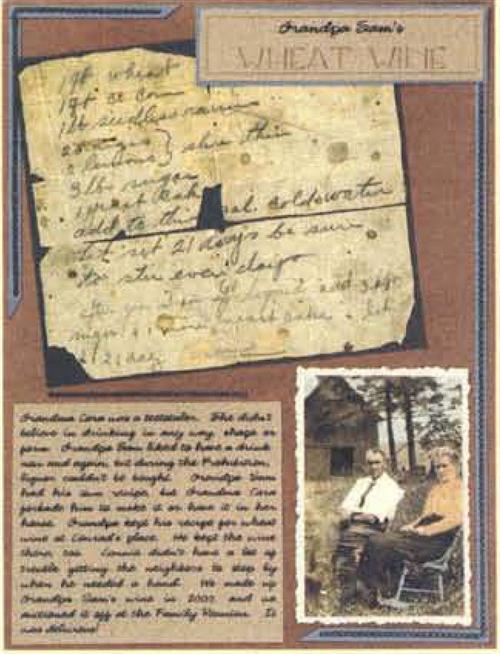 Grandpa Sam's
WHEAT WINE
1 qt wheat
1 qt cr corn
1 lb seedless raisins
2 lemons } slice thin
3 lbs sugar
1 yeast cake
add to this gal. cold water
let sit 21 days be sure
to stir every day
sugar + 1 yeast cake + let
21 day
Grandma Cora was a teetotaler. She didn't
believe in drinking in any way shape or
form. Grandpa Sam liked to have a drink
now and again, but during the Prohibition,
liquor couldn't be bought. Grandpa Sam
had his own recipe, but Grandma Cora
forbade him to make it or have it in her
house. Grandpa kept his recipe for wheat
wine at Conrad's place. He kept the wine
there too. Connie didn't have a lot of
trouble getting the neighbors to stop by
when he needed a hand. We made up
Grandpa Sam's wine in 2002 and we
auctioned it off at the Family Reunion. It
was delicious!